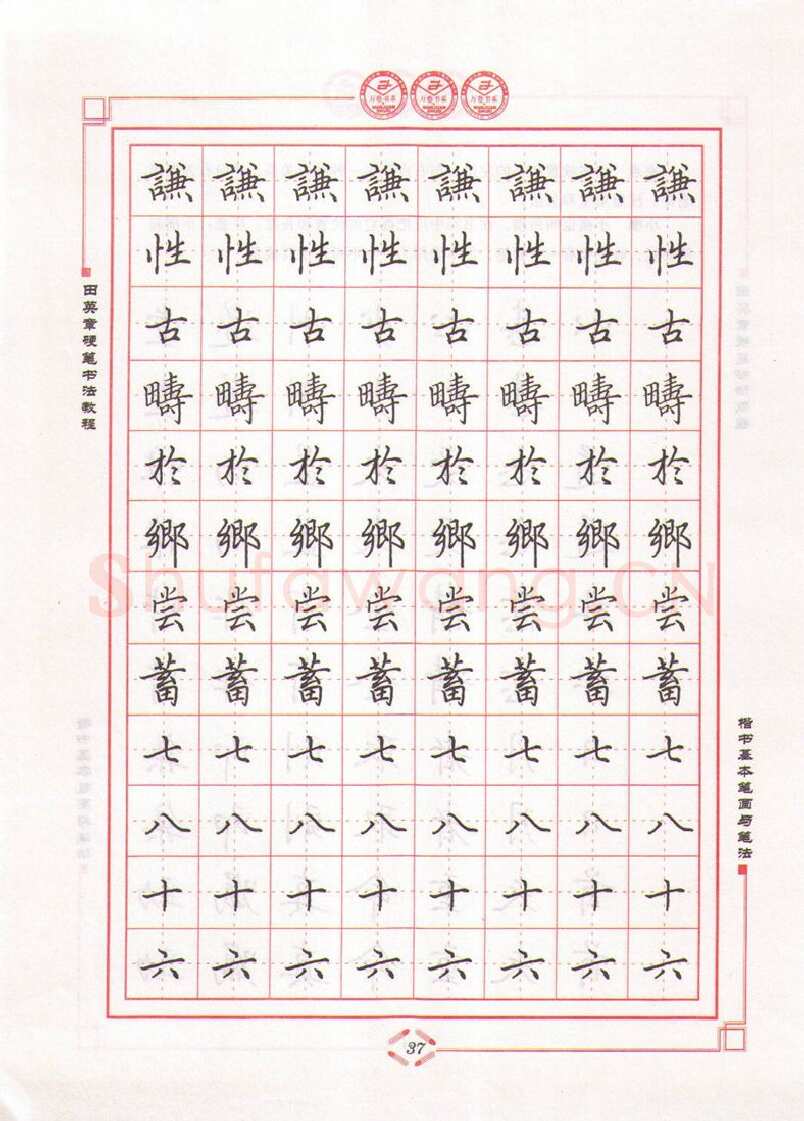 万卷书系 万卷书系 万卷书系
田英章硬笔书法教程
謙 謙 謙 謙 謙 謙 謙 謙
性 性 性 性 性 性 性 性
古 古 古 古 古 古 古 古
疇 疇 疇 疇 疇 疇 疇 疇
於 於 於 於 於 於 於 於
鄉 鄉 鄉 鄉 鄉 鄉 鄉 鄉
尝 尝 尝 尝 尝 尝 尝 尝
蓄 蓄 蓄 蓄 蓄 蓄 蓄 蓄
七 七 七 七 七 七 七 七
八 八 八 八 八 八 八 八
十 十 十 十 十 十 十 十
六 六 六 六 六 六 六 六
Shufawang.CN
楷书基本笔画与笔法
37